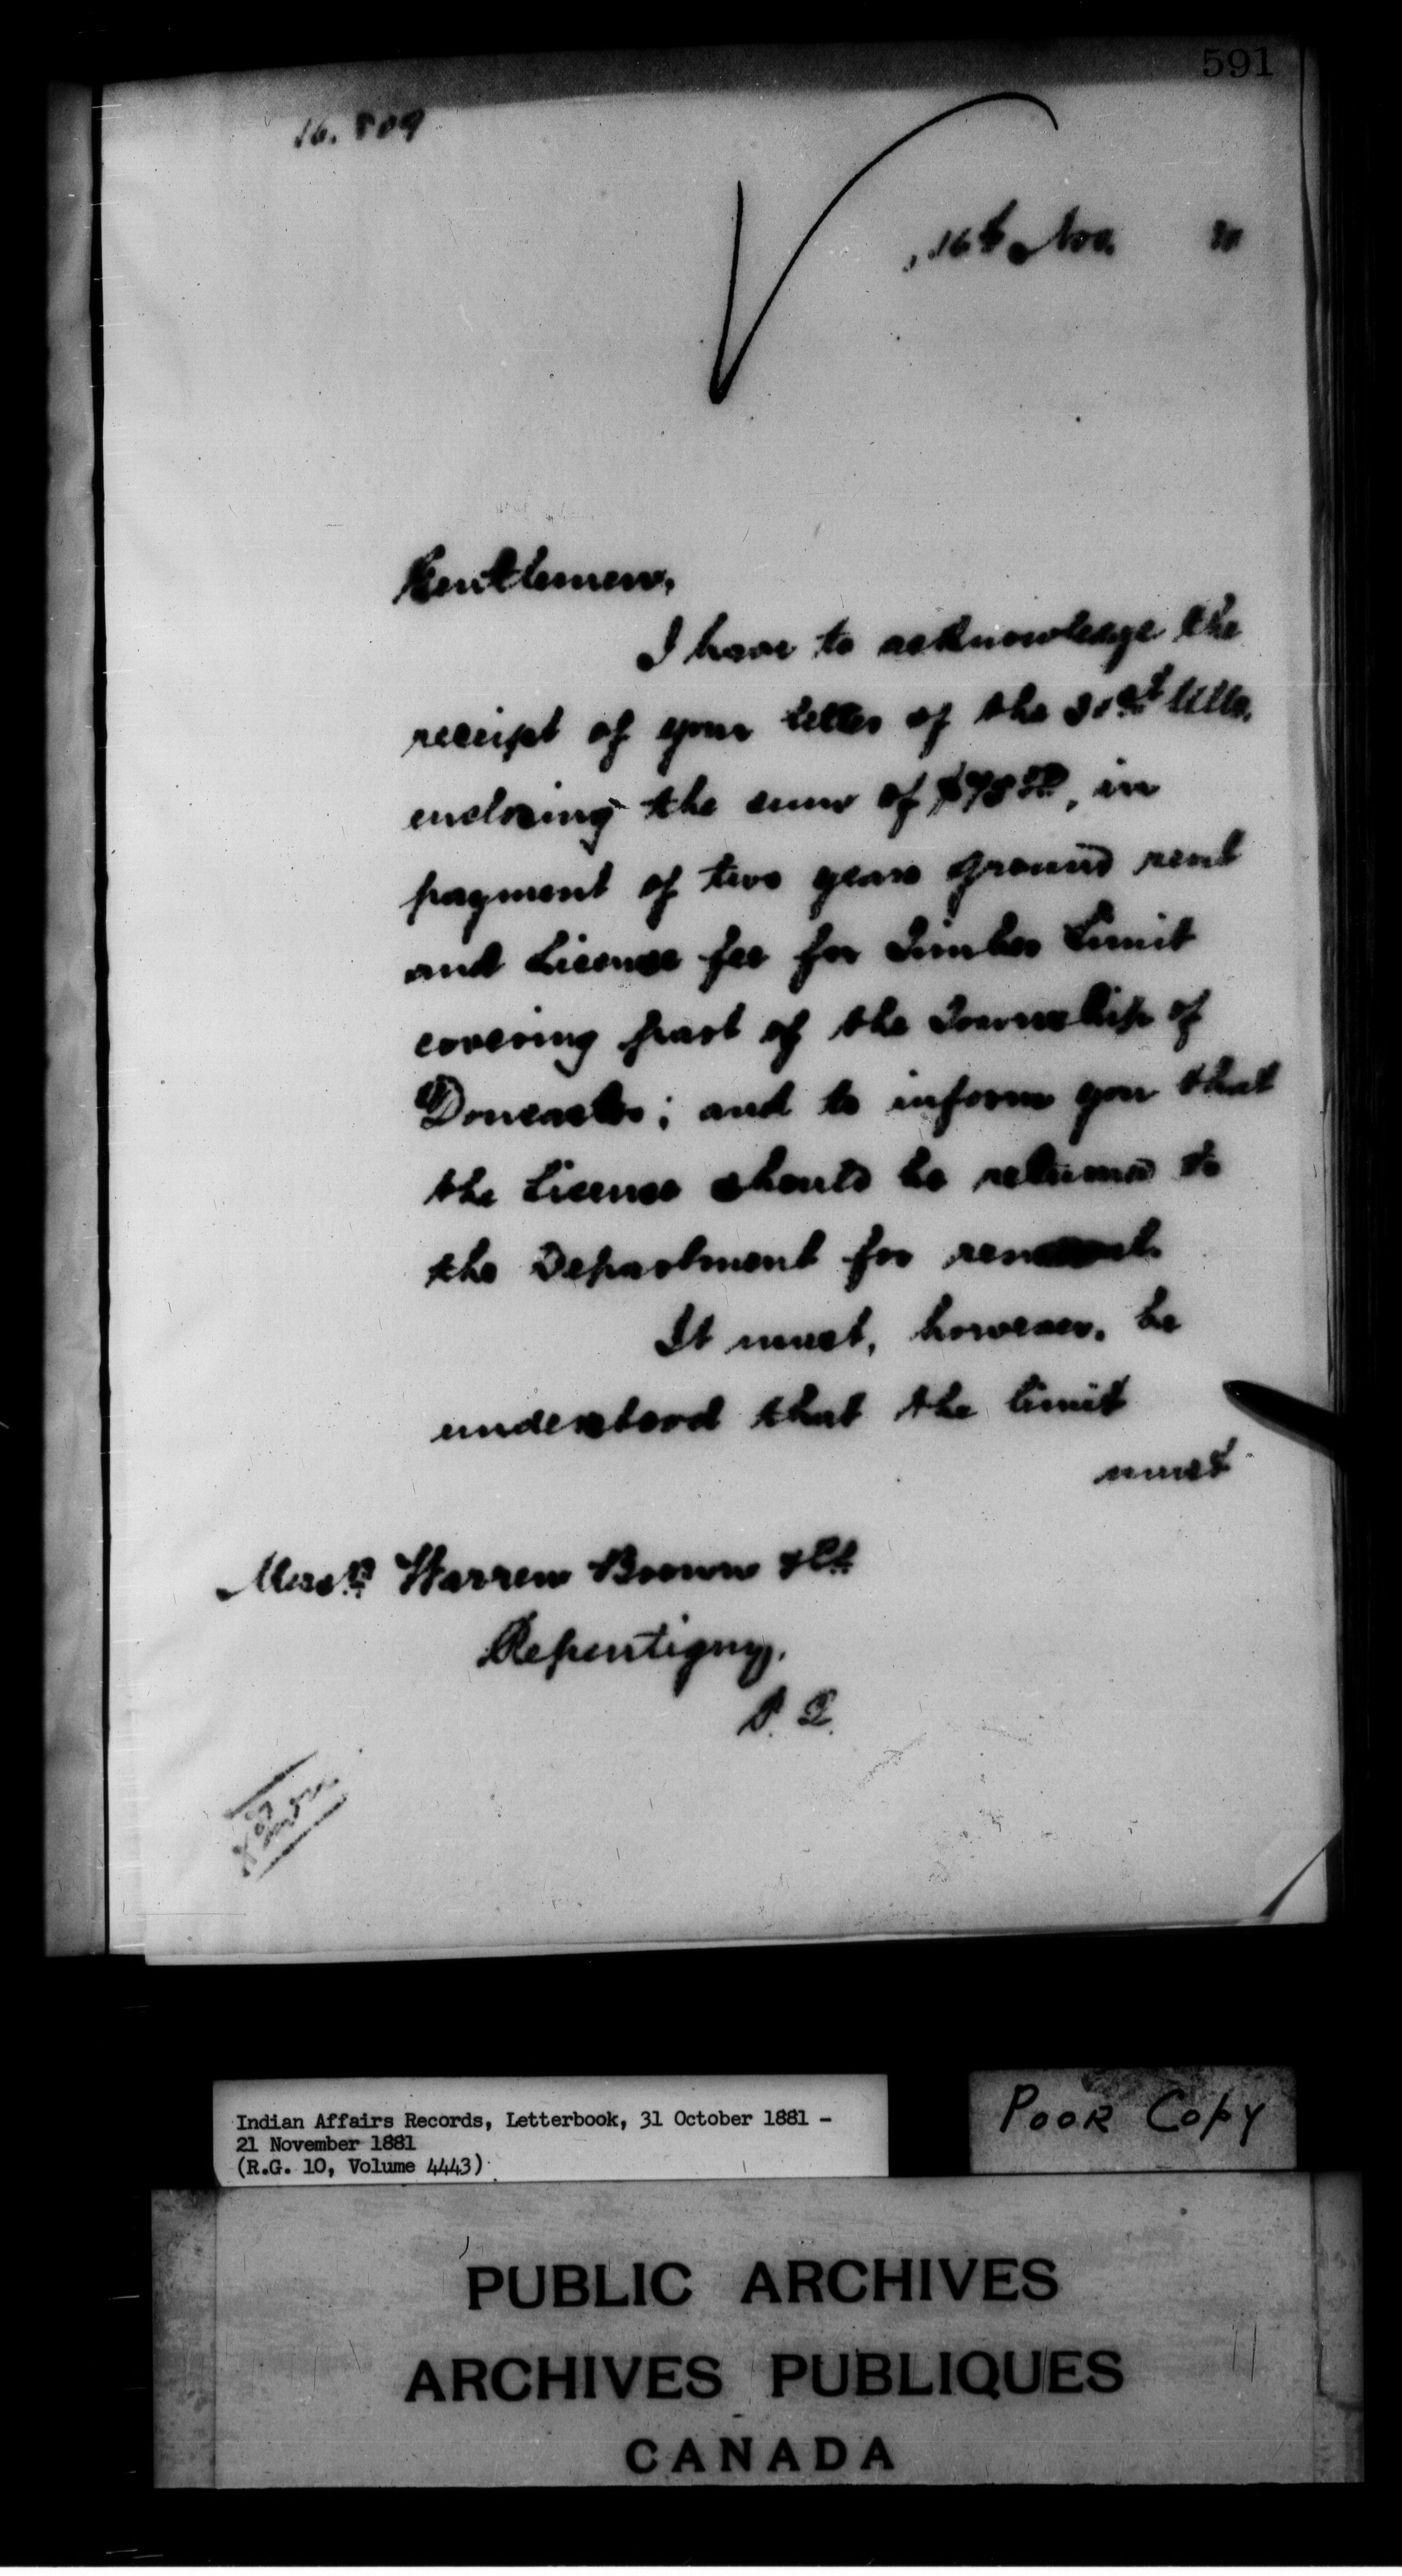 591
16.809
16th Nov. 81
Gentlemen,
I have to acknowledge the
receipt of your letter of the 31st Ulto.
enclosing the sum of $78.00, in
payment of two years ground rent
and License fee for Timber Limit
covering part of the Township of
Doncaster; and to inform you that
the License should be returned to
the Department for renewal.
It must, however, be
understood that the limit
must
Messrs Warren Brown & Co
Repentigny,
P. Q.
Indian Affairs Records, Letterbook, 31 October 1881 -
21 November 1881
(R.G. 10, Volume 4443)
POOR COPY
PUBLIC ARCHIVES
ARCHIVES PUBLIQUES
CANADA